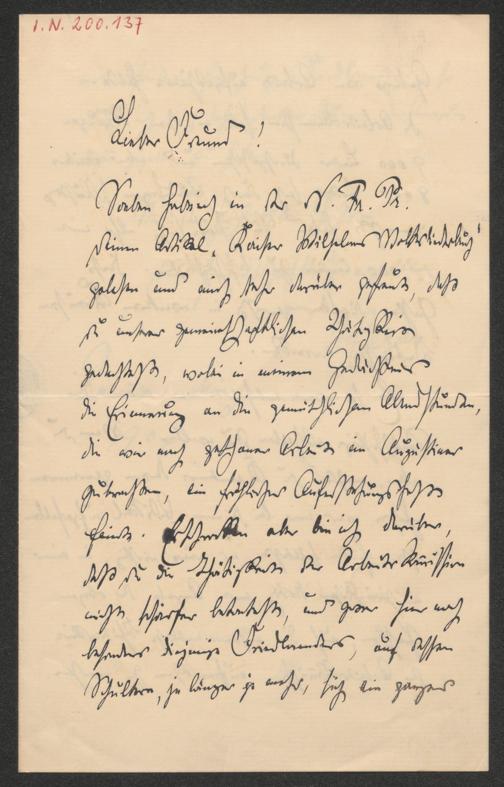 I.N. 200.137
Lieber Freund!
Soeben habe ich in der N. Fr. Pr.
Deinen Artikel „Kaiser Wilhelms Volksliederbuch“
gelesen und mich sehr darüber gefreut, daß
Du unserer gemeinschaftlichen Thätigkeit
gedachtest, wobei in meinem Gedächtniß
die Erinnerung an die gemüthlichen Abendstunden,
die wir nach gethaner Arbeit im Augustiner
zubrachten, ein fröhliches Auferstehungsfest
feierte. Erschrocken aber bin ich darüber,
daß Du die Thätigkeit der Arbeits Kommission
nicht schärfer betontest, und zwar hier noch
besonders diejenige Friedlaenders, auf dessen
Schultern, je länger je mehr, sich ein ganzes